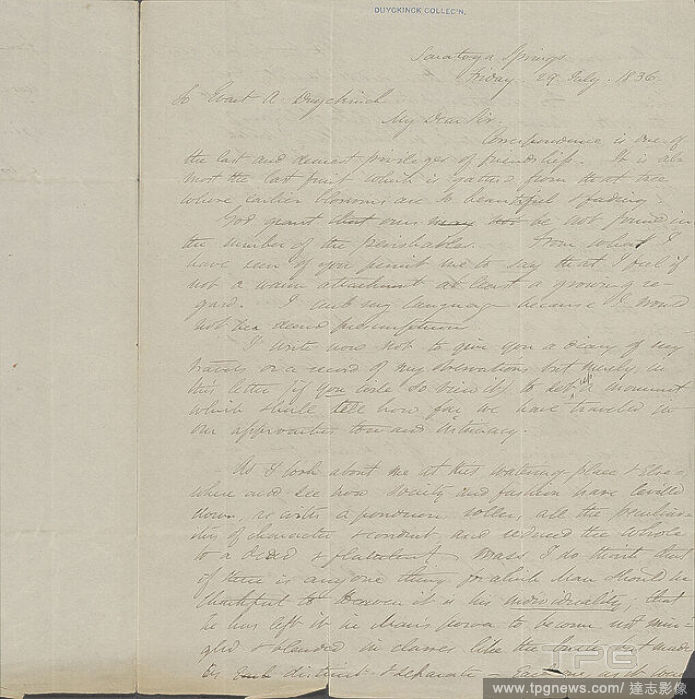 DUYCKINCK COLLEC'N.
Saratoga Springs
Friday. 29 July. 1836.
To Evert A. Duyckinck
My Dear Sir.
Correspondence is one of
the last and dearest privileges of friendship. It is al-
most the last fruit which is gathered from that tree
whose earlier blossoms are so beautiful & fading.
God grant that ours may not be not found in
the number of the perishables. From what I
have seen of you permit me to say that I feel if
not a warm attachment at least a growing re-
gard. I curb my language because I would
not be deemed presumptuous
I write now not to give you a diary of my
travels or a record of my observations but merely, in
this letter (if you will so view it) to set up a monument
which shall tell how far we have traveled in
our approaches toward intimacy.
As I look about me at this watering-place & else-
where and see how society and fashion have levelled
down, as with a ponderous roller, all the peculiari-
ties of character & conduct and reduced the whole
to a dead & mass I do think that
if there is any one thing for which Man should be
thankful to Heaven it is his individuality; that
he has left it in Man's power to become not min-
gled & blended in classes like the but made
distinct & separate
TPG
www.tpgnews.com / 達志影像